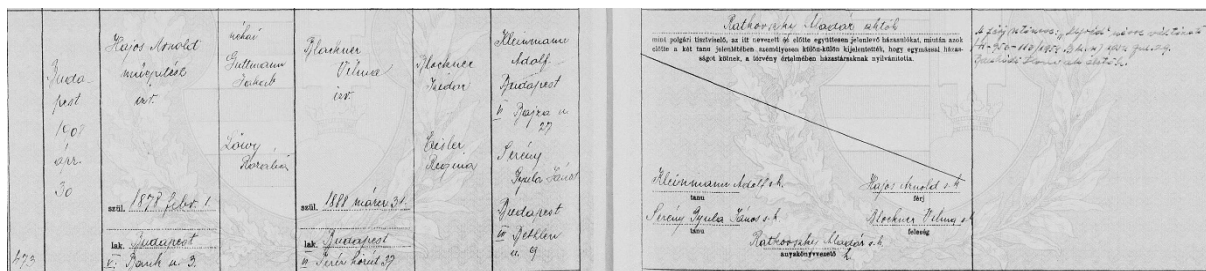 473
Buda-
pest
1908
ápr.
30
Hajós Arnold
műépítész
izr.
szül. 1878 febr. 1.
lak. Budapest
V. Bank u 3.
néhai
Guttmann
Jakab
Löwy
Blockner
Vilma
izr.
szül. 1888 márc. 31.
lak. Budapest
VI Teréz körút 37
Blockner
Izidor
Eisler
Regina
Kleinmann
Adolf
Budapest
VI Bajza u
27
Serény
Gyula János
Budapest
u 9
Ratkovszky Aladár
mint polgári tisztviselő, az itt nevezett és előtte együttesen jelenlevő házasulókat, miután azok
előtte a két tanu jelenlétében személyesen külön-külön kijelentették, hogy egymással háza-
ságot kötnek, a törvény értelmében házastársaknak nyilvánította.
Kleinmann Adolf s.k.
tanu
Hajós Arnold s.k.
férj
Serény Gyula János s.k.
tanu
Blockner Vilma s.k.
feleség
Ratkovszky Aladár s.k.
anyakönyvvezető h.